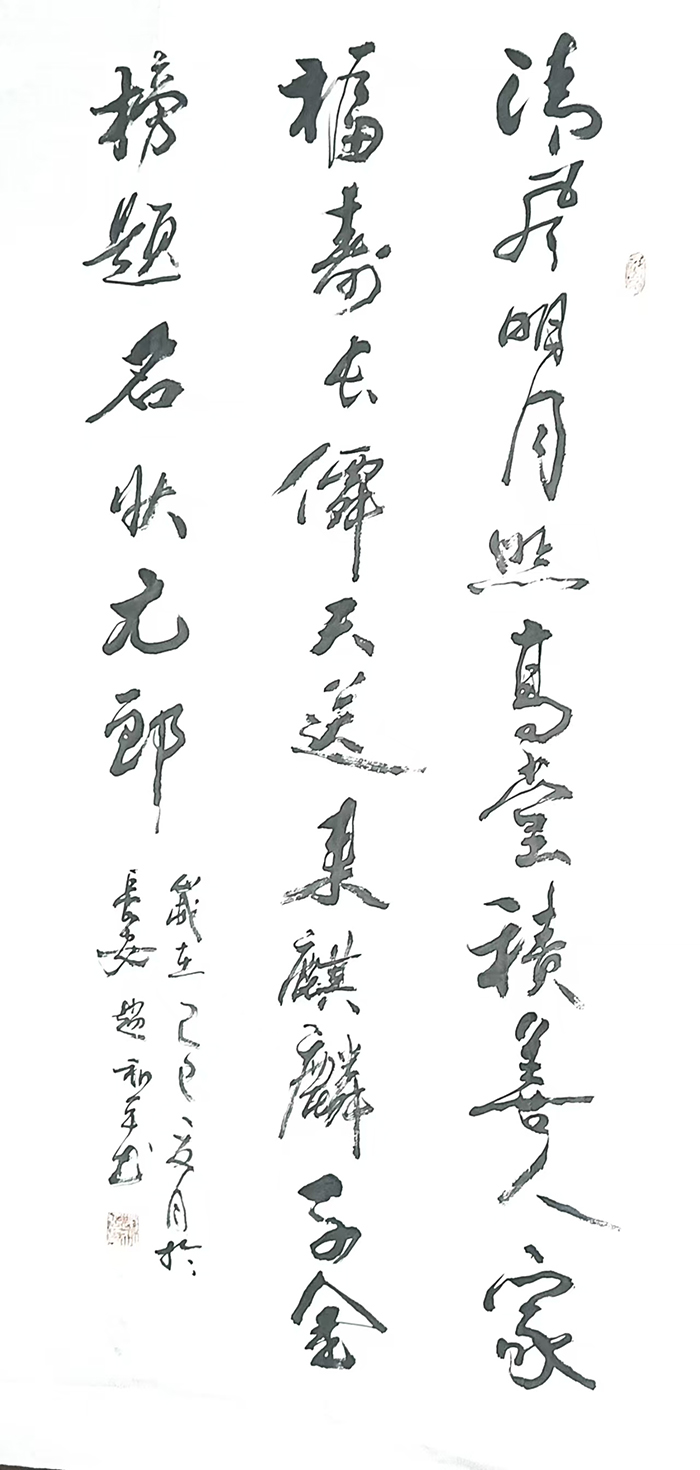 清风明月照高堂积善人家
福寿长仙天送来麒麟子金
榜题名状元郎
岁在乙巳之夏月於
长安赵和平书